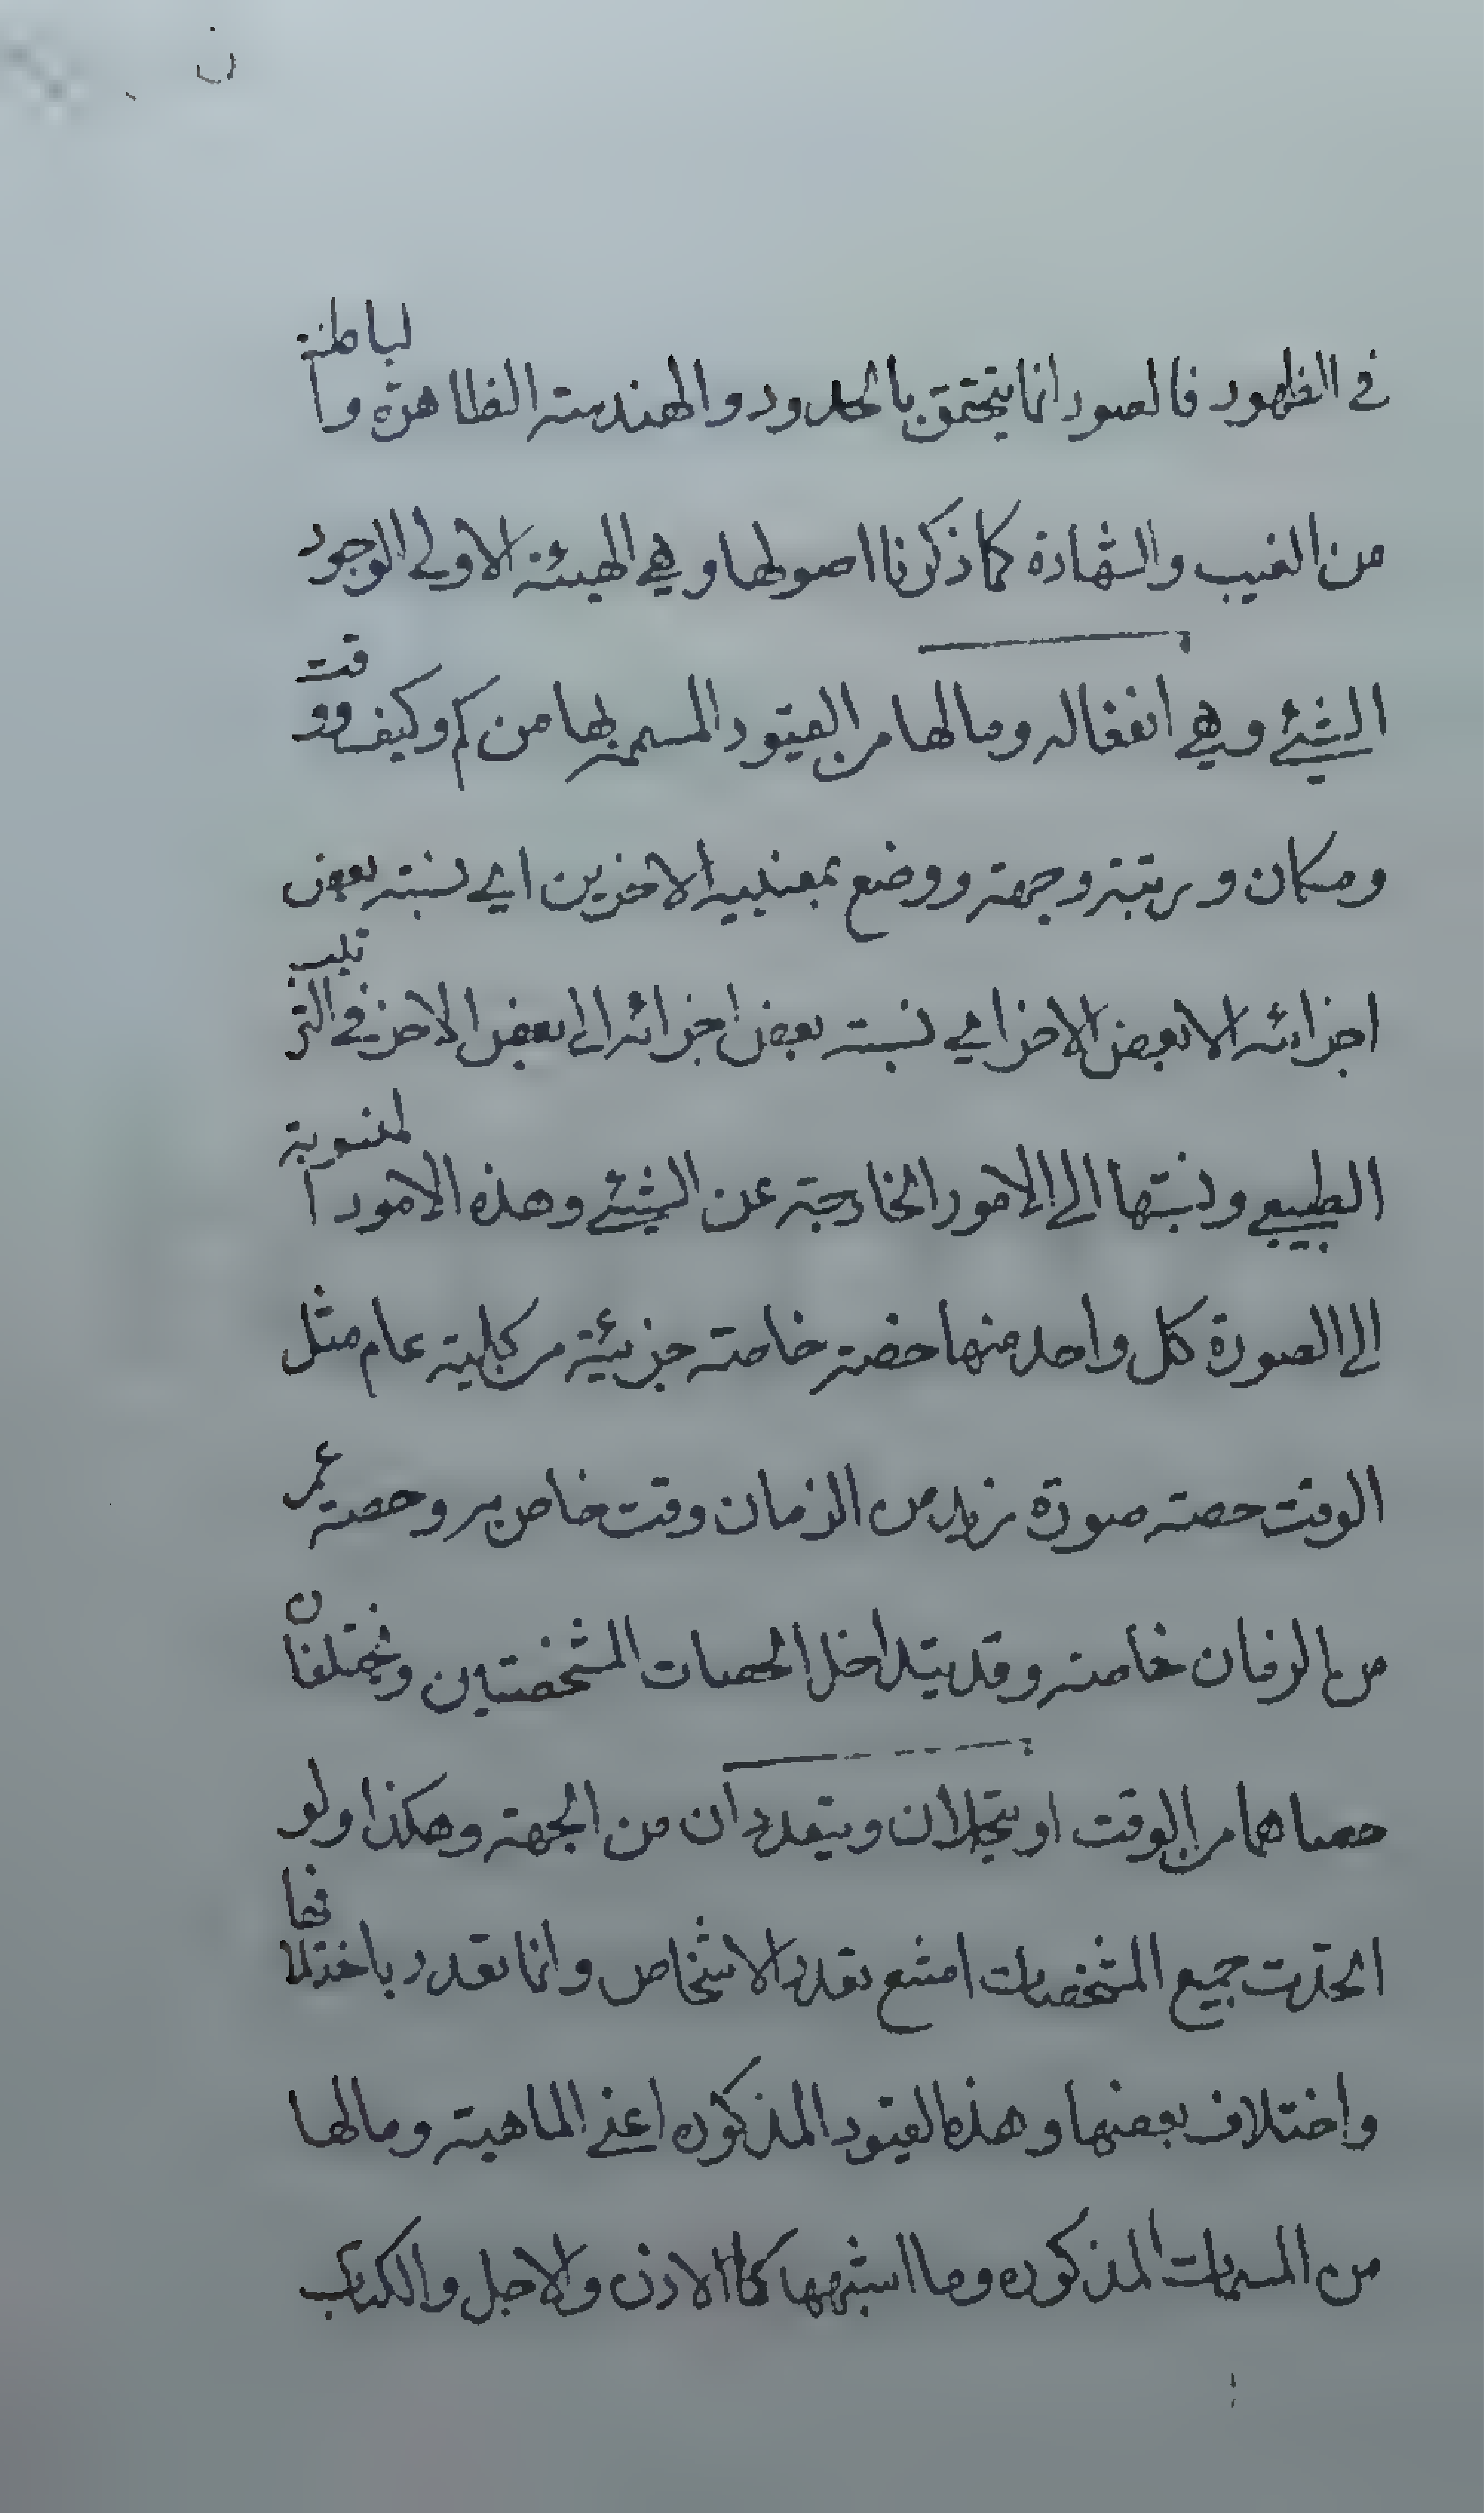 في الظهور فالصور انما يتحقق بالحدود والهندسة الظاهرة والباطنة
من الغيب والشهادة كما ذكرنا اصولها وهي الهيئة الاولى الوجود
الشيئ وهي انفعاله وما لها من القيود المسمى بها من كم وكيف ووقت
ومكان ورتبة وجهة ووضع بمعنييه الاخرين اي نسبة بعض
اجزائه الا بعض الاخر اي نسبة بعض اجزائه الى بعض الاخر في الترتيب
الطبيعي ونسبتها الى الامور الخارجة عن الشيئ وهذه الامور المنسوبة
الى الصورة كل واحد منها حصة خاصة جزئية من كلية عام مثل
الوقت حصة صورة زيد من الزمان وقت خاص به وحصة عمر
من الزمان خاصة وقد يتداخل الحصات المشخصتين ويختلفان
حصاهما من الوقت او يتحدان ويتعددان من الجهة وهكذا ولو
اتحدت جميع المشخصات امتنع تعدد الاشخاص وانما تعدد باختلافها
واختلاف بعضها وهذه القيود المذكوره اعني الماهية وما لها
من المسميات المذكوره وما اشبهها كالاذن والاجل والكتاب